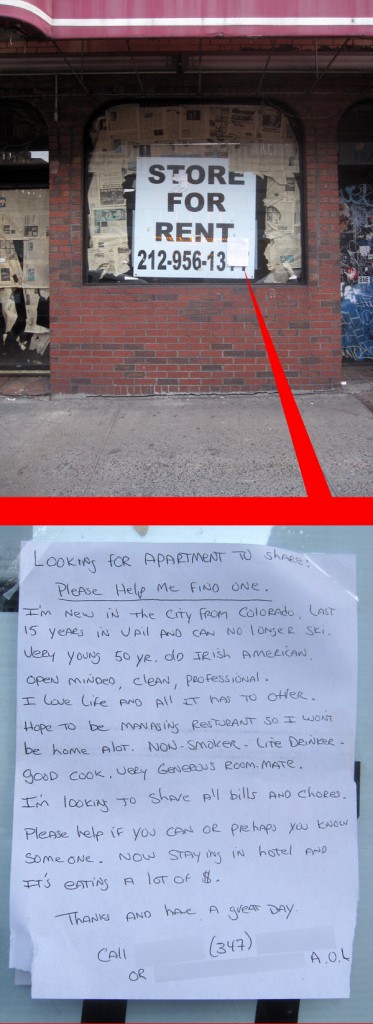 STORE
FOR
RENT
212-956-13
LOOKING FOR APARTMENT TO SHARE:
PLEASE HELP ME FIND ONE.
I'M NEW IN THE CITY FROM COLORADO, LAST
15 YEARS IN VAIL AND CAN NO LONGER SKI.
VERY YOUNG 50 YR. OLD IRISH AMERICAN.
OPEN MINDED, CLEAN, PROFESSIONAL.
I LOVE LIFE AND ALL IT HAS TO OFFER.
HOPE TO BE MANAGING RESTURANT SO I WONT
BE HOME ALOT. NON-SMOKER - LITE DRINKER -
GOOD COOK, VERY GENEROUS ROOM-MATE.
I'M LOOKING TO SHARE ALL BILLS AND CHORES.
PLEASE HELP IF YOU CAN OR PREHAPS YOU KNOW
SOMEONE. NOW STAYING IN HOTEL AND
IT'S EATING A LOT OF $.
THANKS AND HAVE A GREAT DAY.
CALL (347)
OR A.O.L